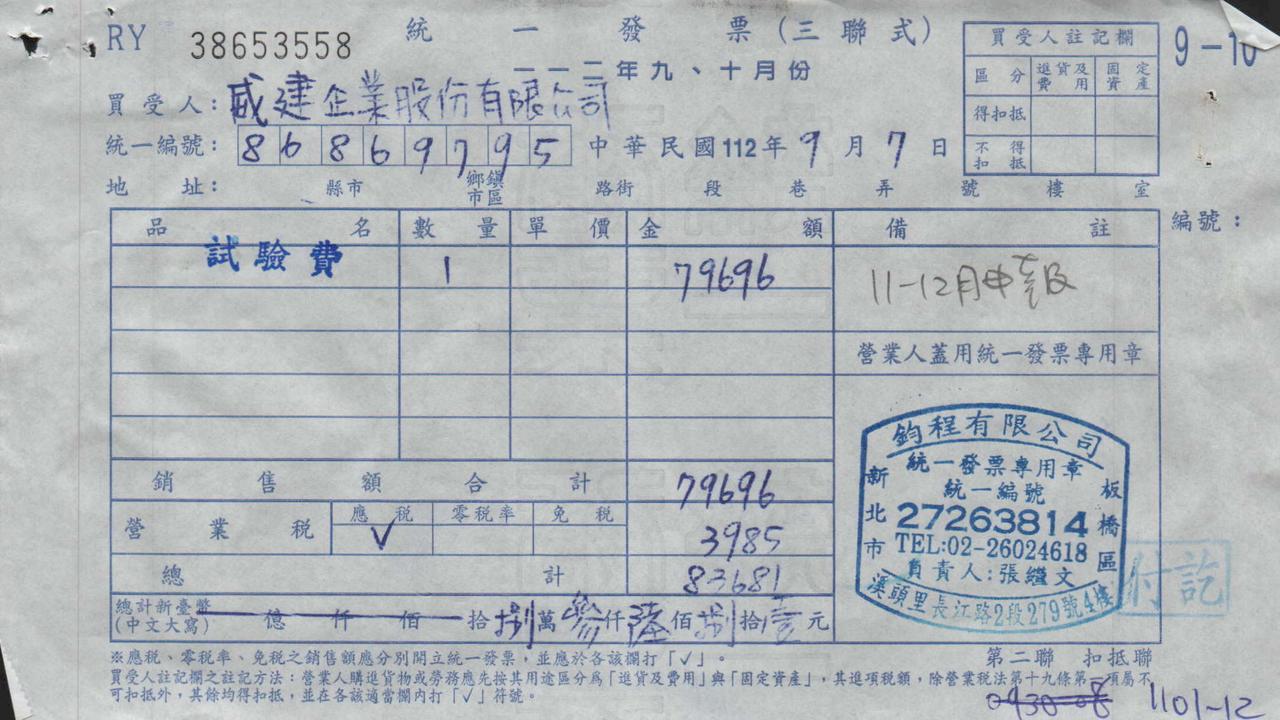 RY 38653558 統一發票(三聯式) 9-10
一一二年九、十月份
買受人註記欄
區分 進貨及費用 固定資產
得扣抵
不得扣抵
買受人:威建企業股份有限公司
統一編號: 86869795 中華民國112年9月7日
地址: 縣市 鄉鎮市區 路街 段 巷 弄 號 樓 室
品名 數量 單價 金額 備註 編號:
試驗費 1 79696 11-12月申報
營業人蓋用統一發票專用章
銷售額合計 79696
營業稅 應稅 零稅率 免稅
√ 3985
總計 83681
總計新臺幣(中文大寫) 億仟佰拾捌萬參仟陸佰捌拾壹元
鈞程有限公司
統一發票專用章
統一編號
27263814
TEL:02-26024618
負責人:張繼文
新北市板橋區
溪頭里長江路2段279號4樓
付訖
※應稅、零稅率、免稅之銷售額應分別開立統一發票,並應於各該欄打「√」。
第二聯 扣抵聯
買受人註記欄之註記方法:營業人購進貨物或勞務應先按其用途區分為「進貨及費用」與「固定資產」,其進項稅額,除營業稅法第十九條第一項屬不
可扣抵外,其餘均得扣抵,並在各該適當欄內打「√」符號。
1101-12